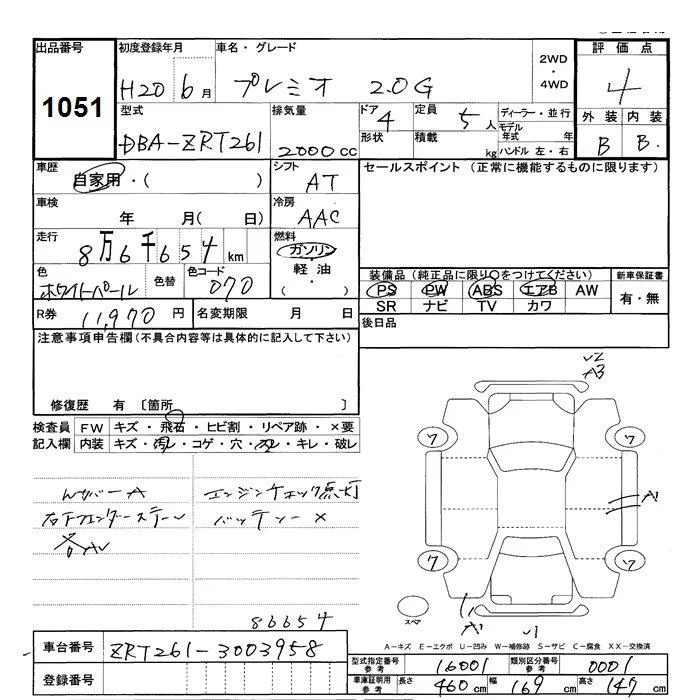 出品番号 初度登録年月 車名・グレード 2WD・4WD 評価点
1051 H20 6月 プレミオ 2.0G 4
型式 排気量 ドア 定員 ディーラー・並行 外装 内装
DBA-ZRT261 2000cc 4 5人 モデル年式 年 B B
形状 積載 kg ハンドル 左・右
車歴 シフト セールスポイント (正常に機能するものに限ります)
自家用・( ) AT
車検 冷房
年 月( 日) AAC
走行 燃料
8万6千654km ガソリン
軽油
・( )
装備品(純正品に限り○をつけてください) 新車保証書
色 色替 色コード
ホワイトパール 070
PS PW ABS エアB AW 有・無
SR ナビ TV カワ
R券 11,970円 名変期限 月 日 後日品
注意事項申告欄(不具合内容等は具体的に記入して下さい)
修復歴 有 〔箇所 〕
検査員 FW キズ・飛石・ヒビ割・リペア跡・×要
記入欄 内装 キズ・汚レ・コゲ・穴・スレ・キレ・破レ
エンジンチェック点灯
バッテリー×
86654
A3
ワ ワ
A
ワ ワ
スペア
A1
A-キズ E-エクボ U-凹み W-補修跡 S-サビ C-腐食 XX-交換済
車台番号 ZRT261-3003958
登録番号
型式指定番号参考 16001 類別区分番号参考 0001
車庫証明用参考 長さ 460cm 幅 169cm 高さ 147cm